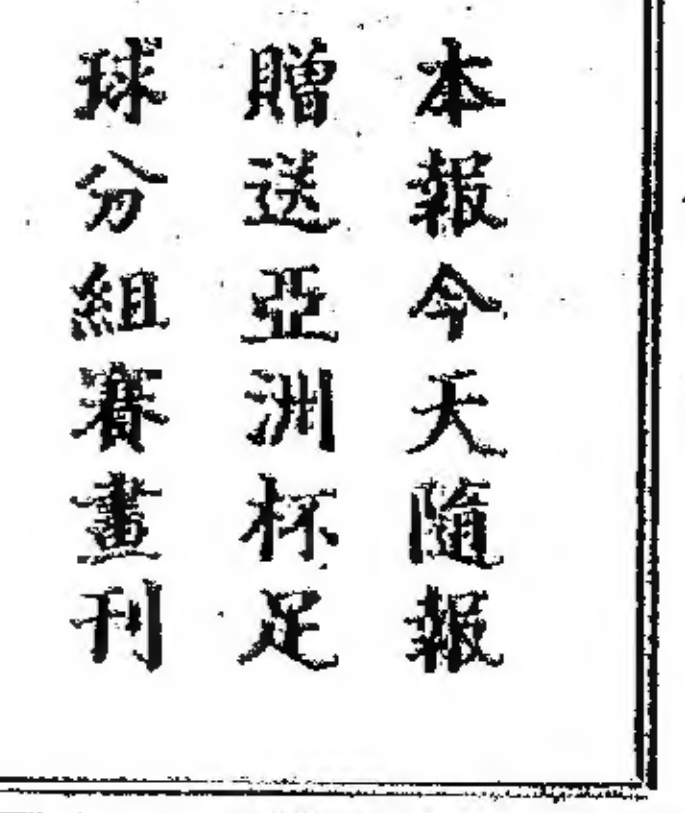 本報今天隨報
贈送亞洲杯足
球分組賽畫刊